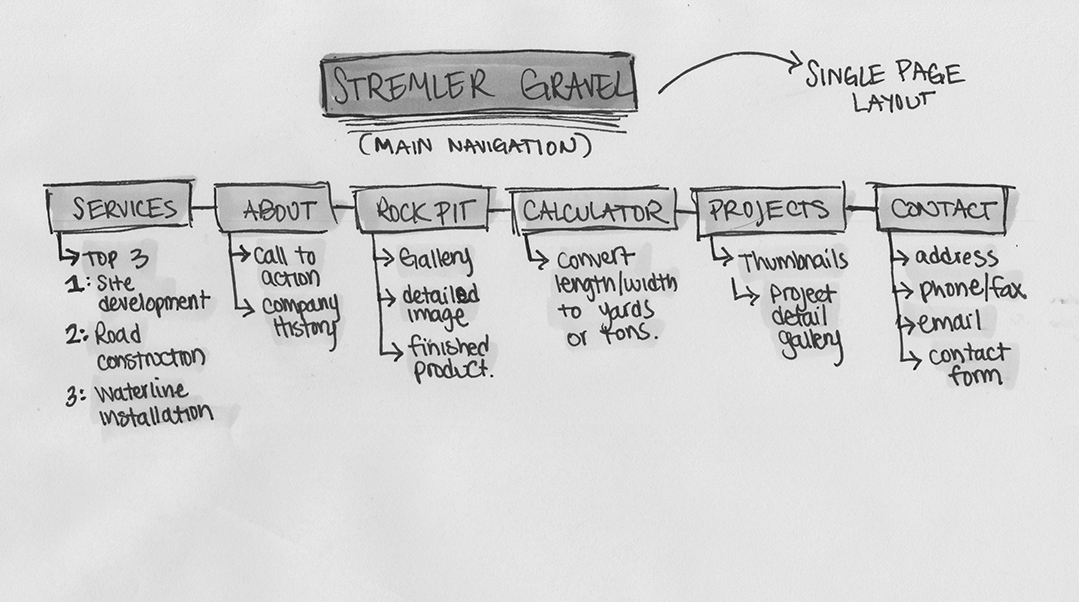 STREMLER GRAVEL
SINGLE PAGE
LAYOUT
(MAIN NAVIGATION)
SERVICES
TOP 3
1: Site
development
2: Road
construction
3: Waterline
installation
ABOUT
Call to
action
company
History
ROCK PIT
Gallery
detailed
image
finished
product.
CALCULATOR
convert
length/width
to yards
or tons.
PROJECTS
Thumbnails
Project
detail
gallery
CONTACT
address
phone/fax
email
contact
form